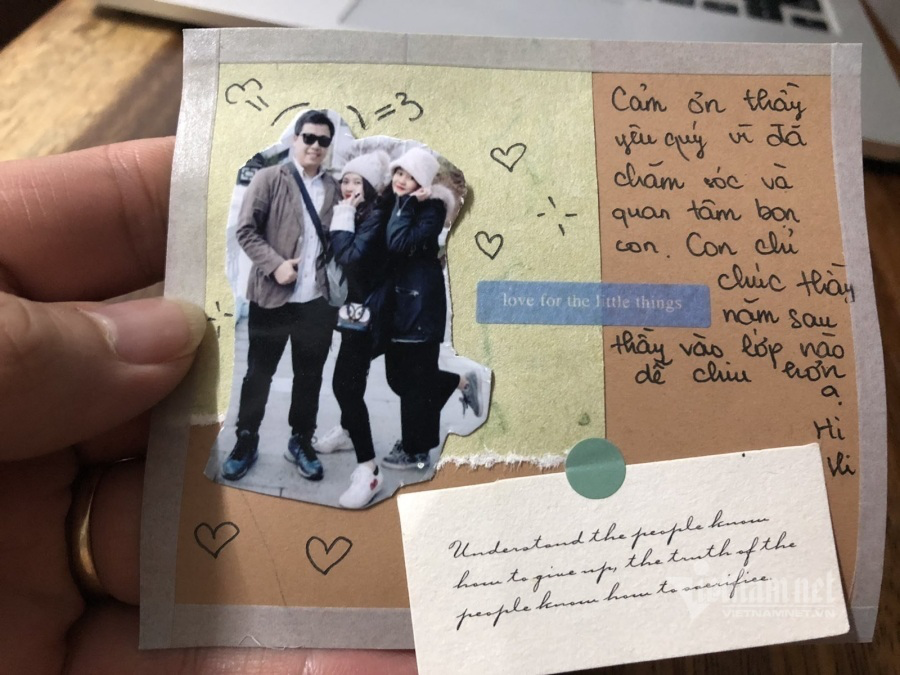 =3
Cảm ơn thầy
yêu quý vì đã
chăm sóc và
quan tâm bọn
con. Con chỉ
chúc thầy
năm sau
thầy vào lớp nào
dễ chịu hơn
ạ.
Hi
Hi
love for the little things
Understand the people know
how to give up, the truth of the
people know how to sacrifice
vietnamnet
VIETNAMNET.VN